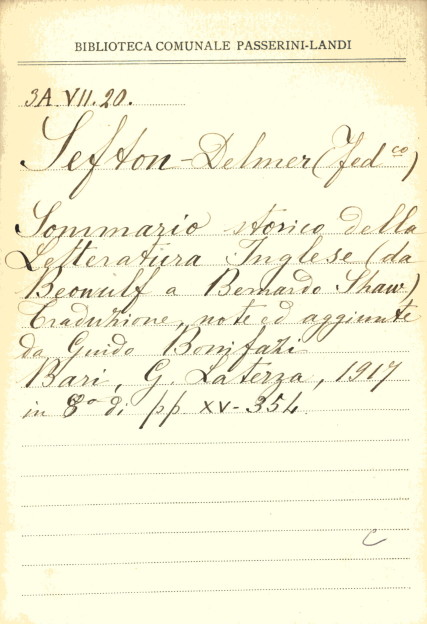 BIBLIOTECA COMUNALE PASSERINI-LANDI
3A.VII.20.
Sefton-Delmer (Fed.co)
Sommario storico della
Letteratura Inglese (da
Beowulf a Bernardo Shaw)
Traduzione, note ed aggiunte
da Guido Bonifazi
Bari, G. Laterza, 1917
in 8° di pp XV-354.